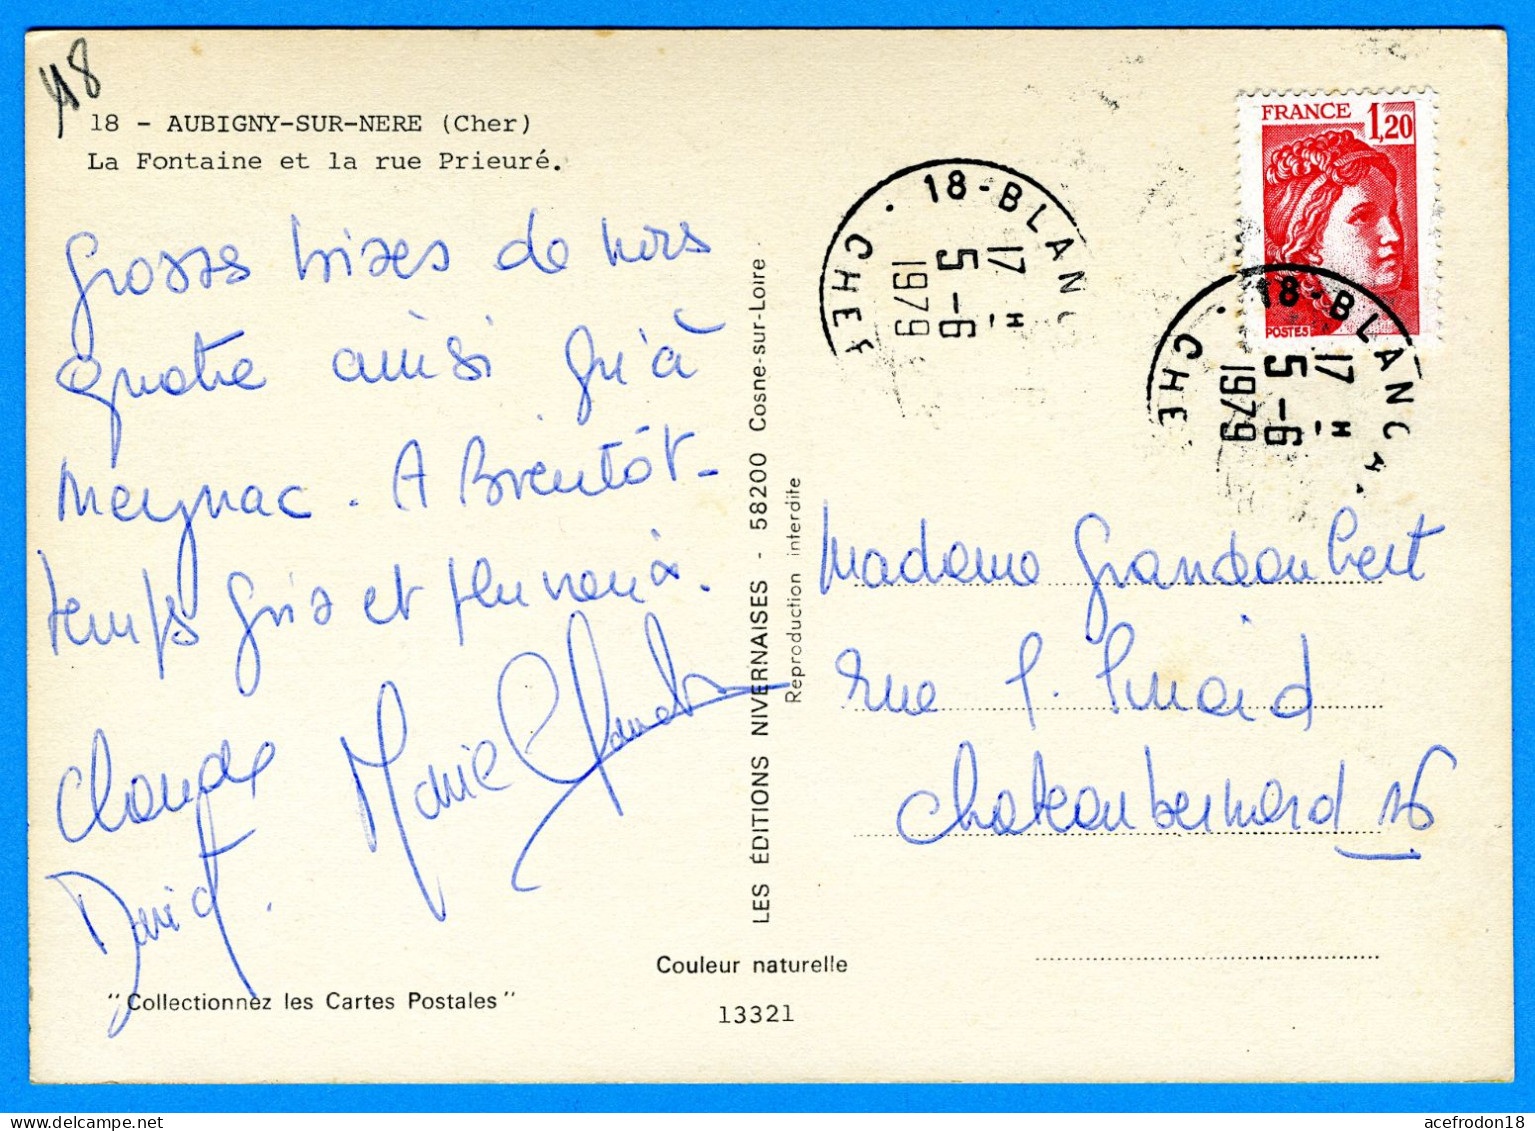 18 - AUBIGNY-SUR-NERE (Cher)
La Fontaine et la rue Prieuré.
Grosses bises de nous
quatre ainsi qu'à
Meymac. A Bientôt -
temps gris et pluvieux.
Claude Marie Claude
David.
"Collectionnez les Cartes Postales"
LES ÉDITIONS NIVERNAISES - 58200 Cosne-sur-Loire
Reproduction interdite
Couleur naturelle
13321
FRANCE 1,20
POSTES
18-BLANC
CHE
17 H
5-6
1979
18-BLANCA
CHE
17 H
5-6
1979
Madame Grandaubert
rue P.
Chateaubernard 16
acefrodon18